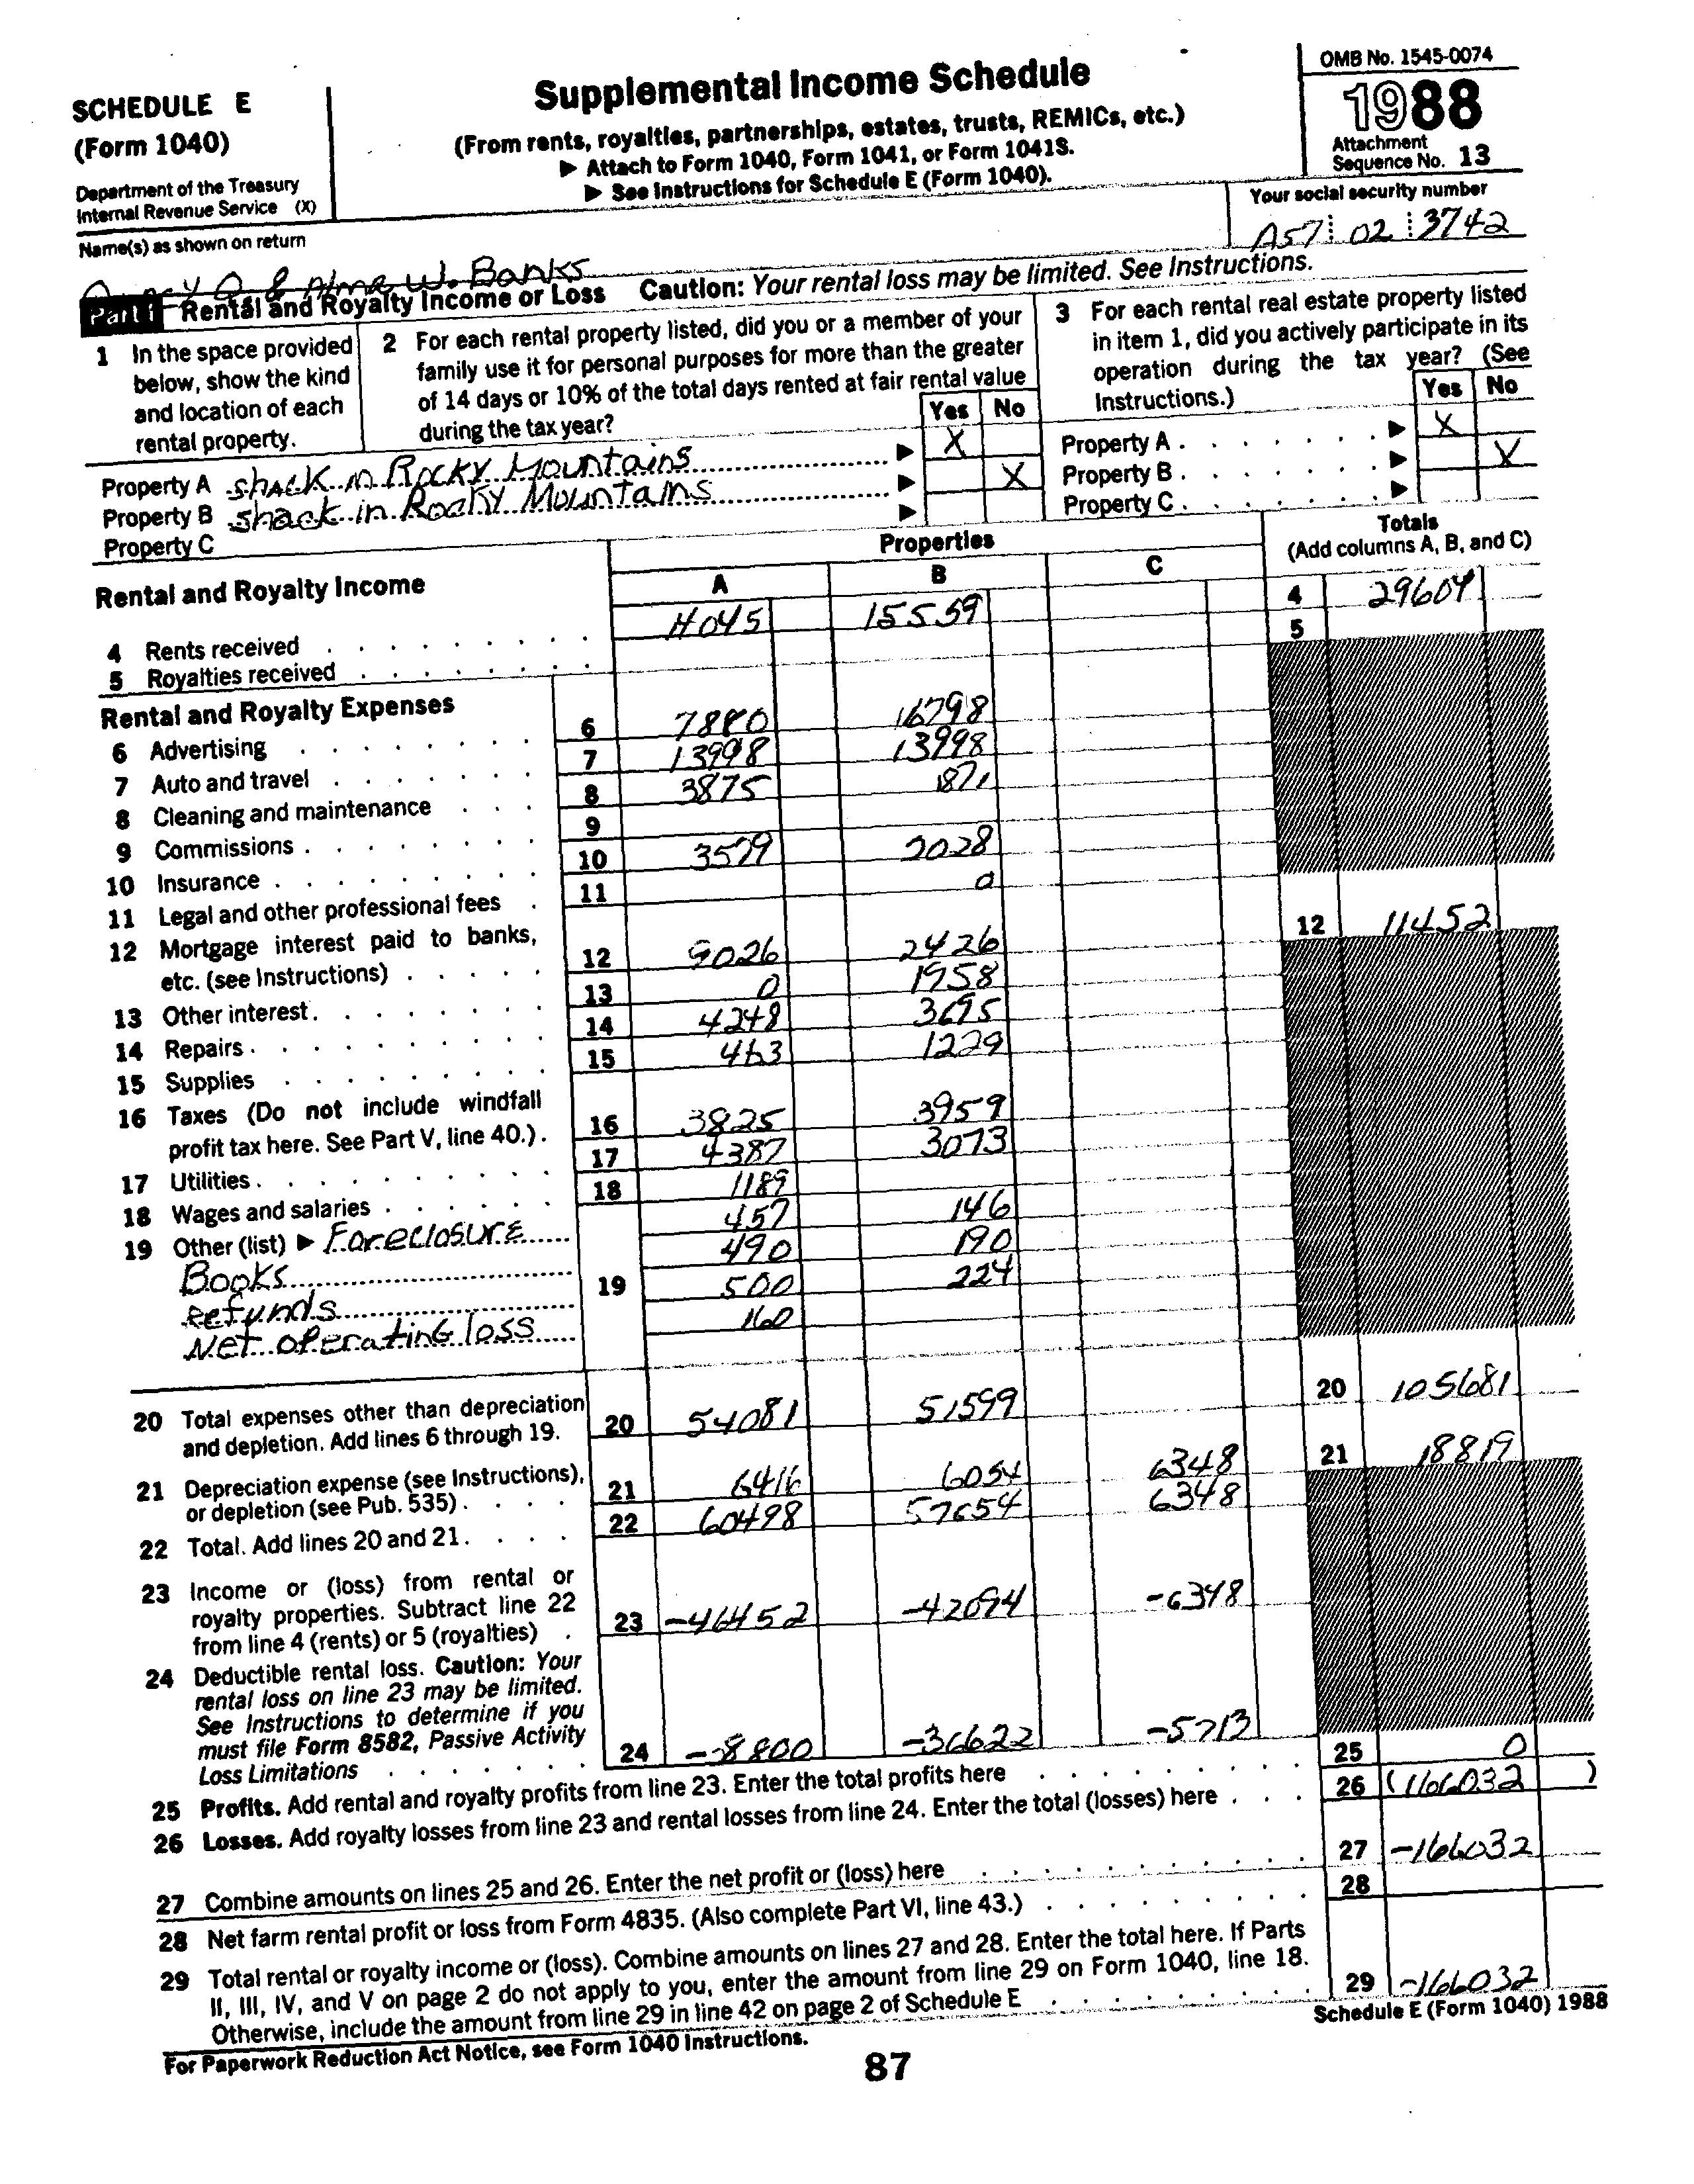 SCHEDULE E
(Form 1040)
Department of the Treasury
Internal Revenue Service (X)
Supplemental Income Schedule
(From rents, royalties, partnerships, estates, trusts, REMICs, etc.)
▶ Attach to Form 1040, Form 1041, or Form 1041S.
▶ See Instructions for Schedule E (Form 1040).
OMB No. 1545-0074
1988
Attachment
Sequence No. 13
Name(s) as shown on return
Your social security number
A57 02 3742
& Alma W. Banks
Part I Rental and Royalty Income or Loss Caution: Your rental loss may be limited. See Instructions.
1 In the space provided
below, show the kind
and location of each
rental property.
2 For each rental property listed, did you or a member of your
family use it for personal purposes for more than the greater
of 14 days or 10% of the total days rented at fair rental value
during the tax year?
Yes No
3 For each rental real estate property listed
in item 1, did you actively participate in its
operation during the tax year? (See
Instructions.)
Yes No
Property A shack in Rocky Mountains ▶ X Property A ▶ X
Property B shack in Rocky Mountains ▶ X Property B ▶ X
Property C ▶ Property C ▶
Rental and Royalty Income
Properties
A B C
Totals
(Add columns A, B, and C)
4 Rents received 14045 15559 4 29604
5 Royalties received 5
Rental and Royalty Expenses
6 Advertising 6 7880 16798
7 Auto and travel 7 13998 13998
8 Cleaning and maintenance 8 3875 1871
9 Commissions 9
10 Insurance 10 3579 2028
11 Legal and other professional fees 11 0
12 Mortgage interest paid to banks,
etc. (see Instructions) 12 9026 2426 12 11452
13 Other interest 13 0 1958
14 Repairs 14 4248 3695
15 Supplies 15 463 1229
16 Taxes (Do not include windfall
profit tax here. See Part V, line 40.) 16 3825 3959
17 Utilities 17 4387 3073
18 Wages and salaries 18 1189
19 Other (list) ▶ Foreclosure 457 146
Books 490 190
refunds 19 500 224
Net operating loss 160
20 Total expenses other than depreciation
and depletion. Add lines 6 through 19. 20 54081 51599 20 105681
21 Depreciation expense (see Instructions),
or depletion (see Pub. 535) 21 6416 6054 6348 21 18819
22 Total. Add lines 20 and 21 22 60498 57654 6348
23 Income or (loss) from rental or
royalty properties. Subtract line 22
from line 4 (rents) or 5 (royalties) 23 -46452 -42094 -6348
24 Deductible rental loss. Caution: Your
rental loss on line 23 may be limited.
See Instructions to determine if you
must file Form 8582, Passive Activity
Loss Limitations 24 -36622 -5713
25 Profits. Add rental and royalty profits from line 23. Enter the total profits here 25 0
26 Losses. Add royalty losses from line 23 and rental losses from line 24. Enter the total (losses) here 26 (166032)
27 Combine amounts on lines 25 and 26. Enter the net profit or (loss) here 27 -166032
28 Net farm rental profit or loss from Form 4835. (Also complete Part VI, line 43.) 28
29 Total rental or royalty income or (loss). Combine amounts on lines 27 and 28. Enter the total here. If Parts
II, III, IV, and V on page 2 do not apply to you, enter the amount from line 29 on Form 1040, line 18.
Otherwise, include the amount from line 29 in line 42 on page 2 of Schedule E 29 -166032
For Paperwork Reduction Act Notice, see Form 1040 Instructions.
Schedule E (Form 1040) 1988
87